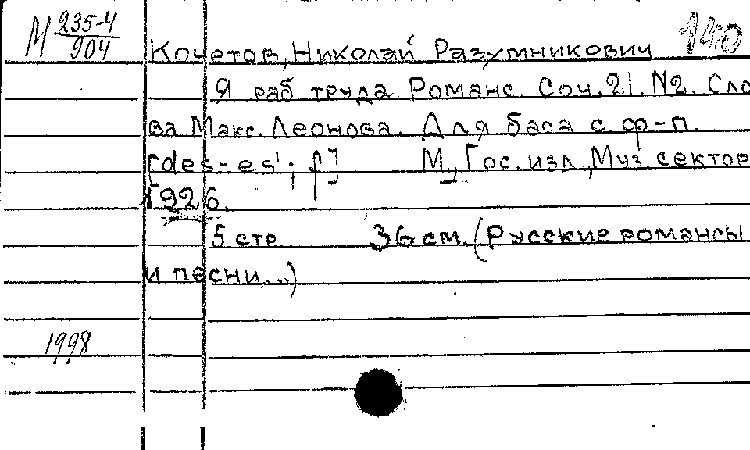 М 235-4
904
140
Кочетов, Николай Разумникович
Я раб труда Романс. Соч. 21. N2. Сло
ва Макс. Леонова. Для баса с ф-п.
[des-es'; f] М., Гос. изд, Муз сектор
1926.
5 стр 36 см. (Русские романсы
и песни...)
1998